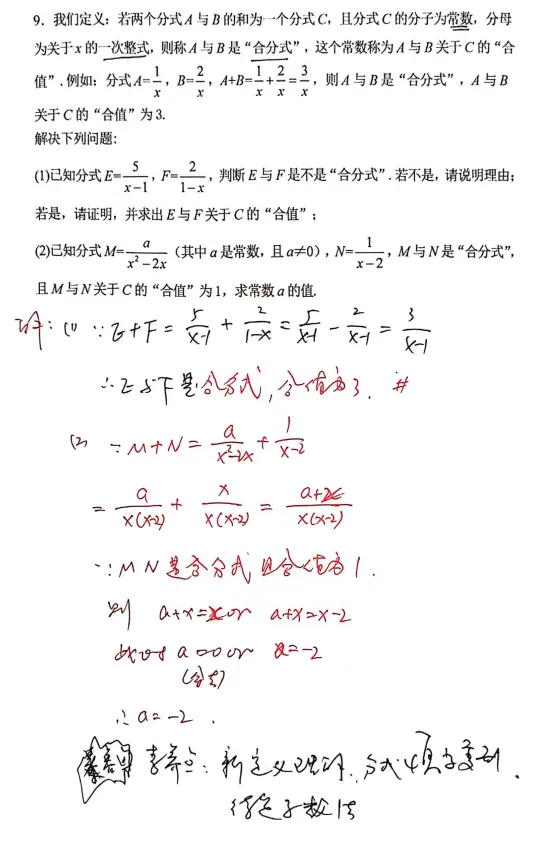 9. 我们定义：若两个分式 A 与 B 的和为一个分式 C，且分式 C 的分子为常数，分母
为关于 x 的一次整式，则称 A 与 B 是“合分式”，这个常数称为 A 与 B 关于 C 的“合
值”. 例如：分式 A=1/x，B=2/x，A+B=1/x+2/x=3/x，则 A 与 B 是“合分式”，A 与 B
关于 C 的“合值”为 3.
解决下列问题:
(1)已知分式 E=5/(x-1)，F=2/(1-x)，判断 E 与 F 是不是“合分式”. 若不是，请说明理由；
若是，请证明，并求出 E 与 F 关于 C 的“合值”；
(2)已知分式 M=a/(x²-2x)（其中 a 是常数，且 a≠0），N=1/(x-2)，M 与 N 是“合分式”，
且 M 与 N 关于 C 的“合值”为 1，求常数 a 的值.
解: (1) ∵E+F=5/(x-1)+2/(1-x)=5/(x-1)-2/(x-1)=3/(x-1)
∴E与F是合分式, 合值为3. #
(2) ∵M+N=a/(x²-2x)+1/(x-2)
=a/(x(x-2))+x/(x(x-2))=(a+x)/(x(x-2))
∵M N是合分式 且合值为1.
则 a+x=x or a+x=x-2
a=0 or a=-2
(舍去)
∴a=-2.
素养点: 新定义理解、分式
待定系数法